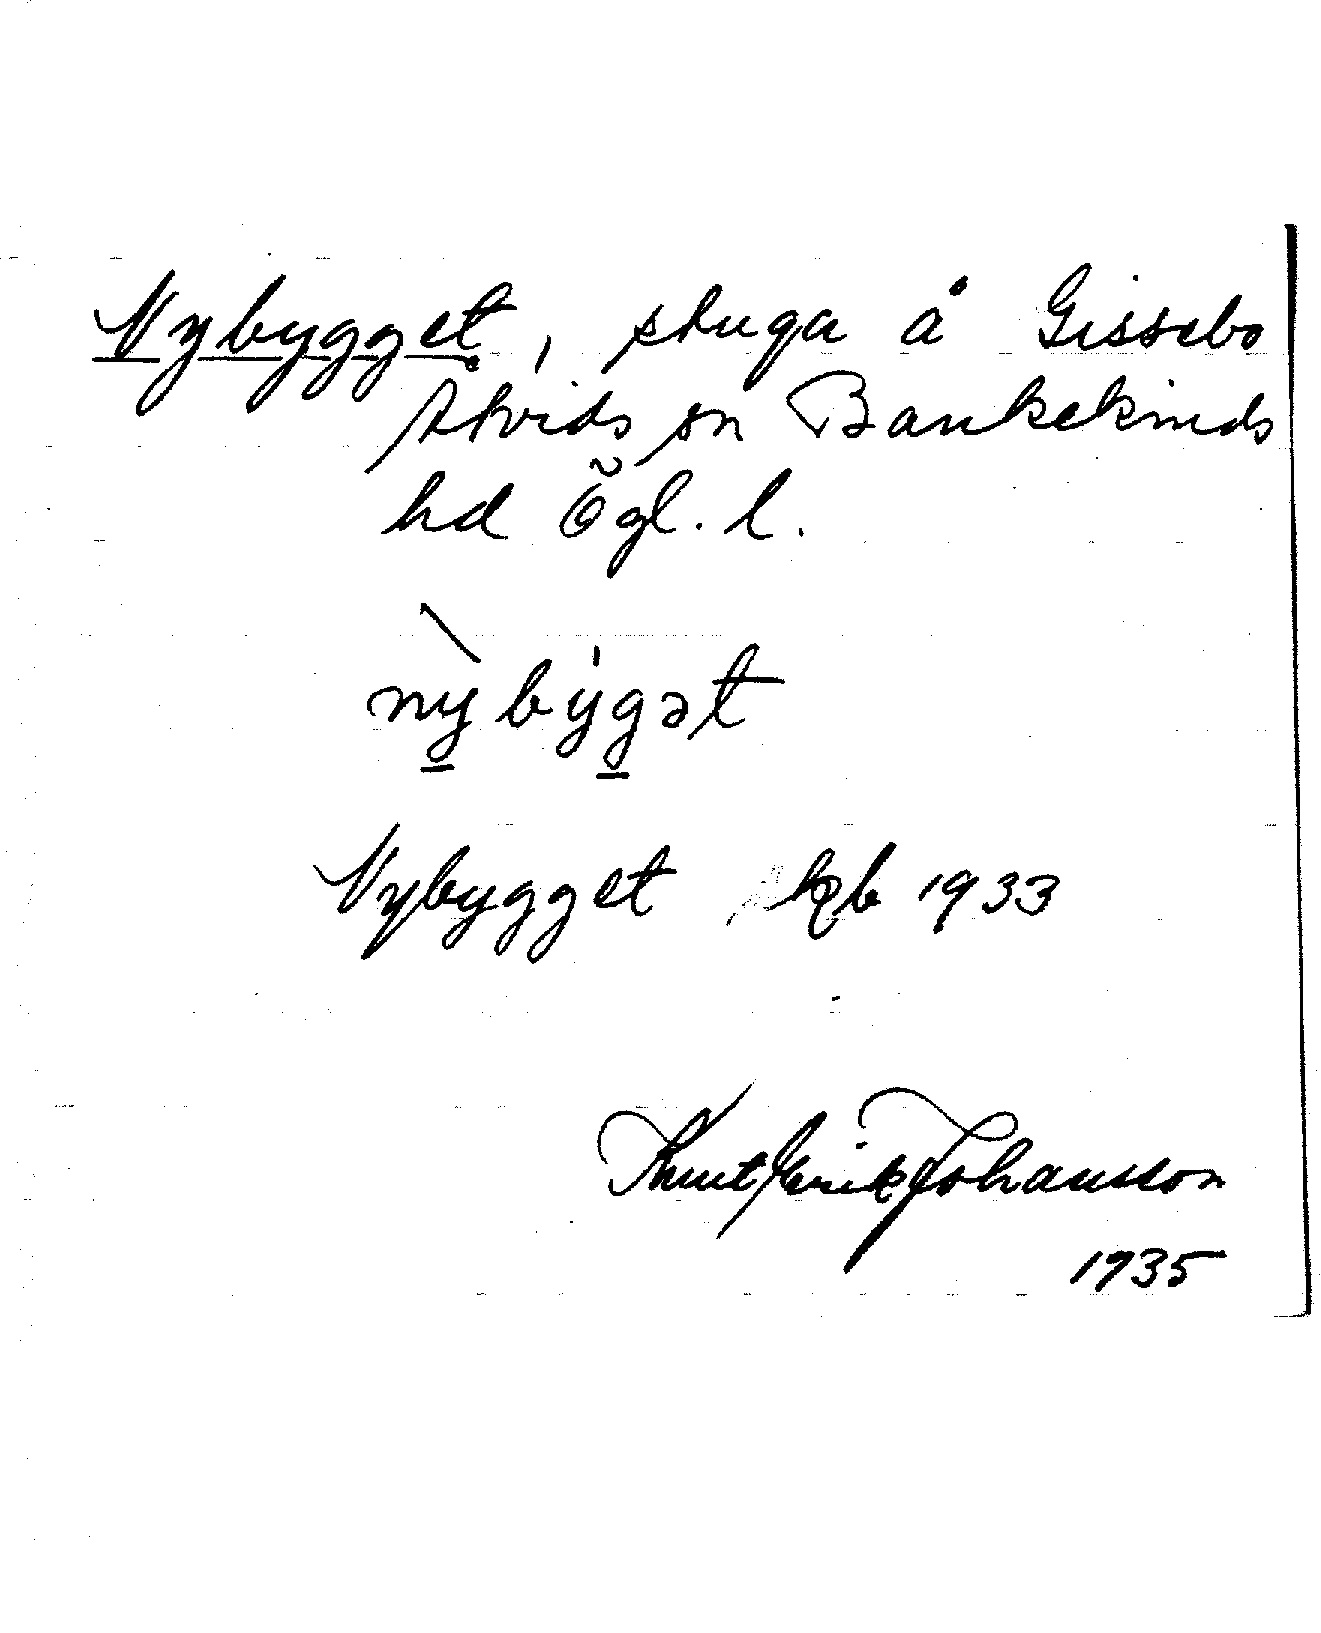 Nybygget, stuga å Gissebo
Åtvids sn Bankekinds
hd Ögl. l.
nỳ̲býg̲ət
Nybygget kb 1933
Knut Erik Johansson
1935